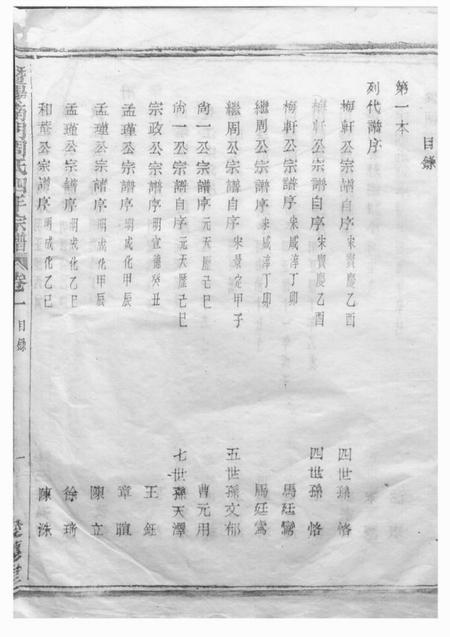 目錄
第一本
列代譜序
梅軒公宗譜自序 宋寶慶乙酉 四世孫 恪
梅軒公宗譜自序 宋寶慶乙酉 四世孫 恪
梅軒公宗譜序 宋咸淳丁卯 馬廷鸞
繼周公宗譜序 宋咸淳丁卯 馬廷鸞
繼周公宗譜自序 宋景定甲子 五世孫文郁
尙一公宗譜序 元天歷己巳 曹元用
尙一公宗譜自序 元天歷己巳 七世孫天澤
宗政公宗譜序 明宣德癸丑 王鈺
孟瑾公宗譜序 明成化甲辰 章瑄
孟瑾公宗譜序 明成化甲辰 陳立
孟瑾公宗譜序 明成化乙巳 徐琦
和菴公宗譜序 明成化乙巳 陳洙
暨陽南門周氏四年宗譜 卷一 目錄 一